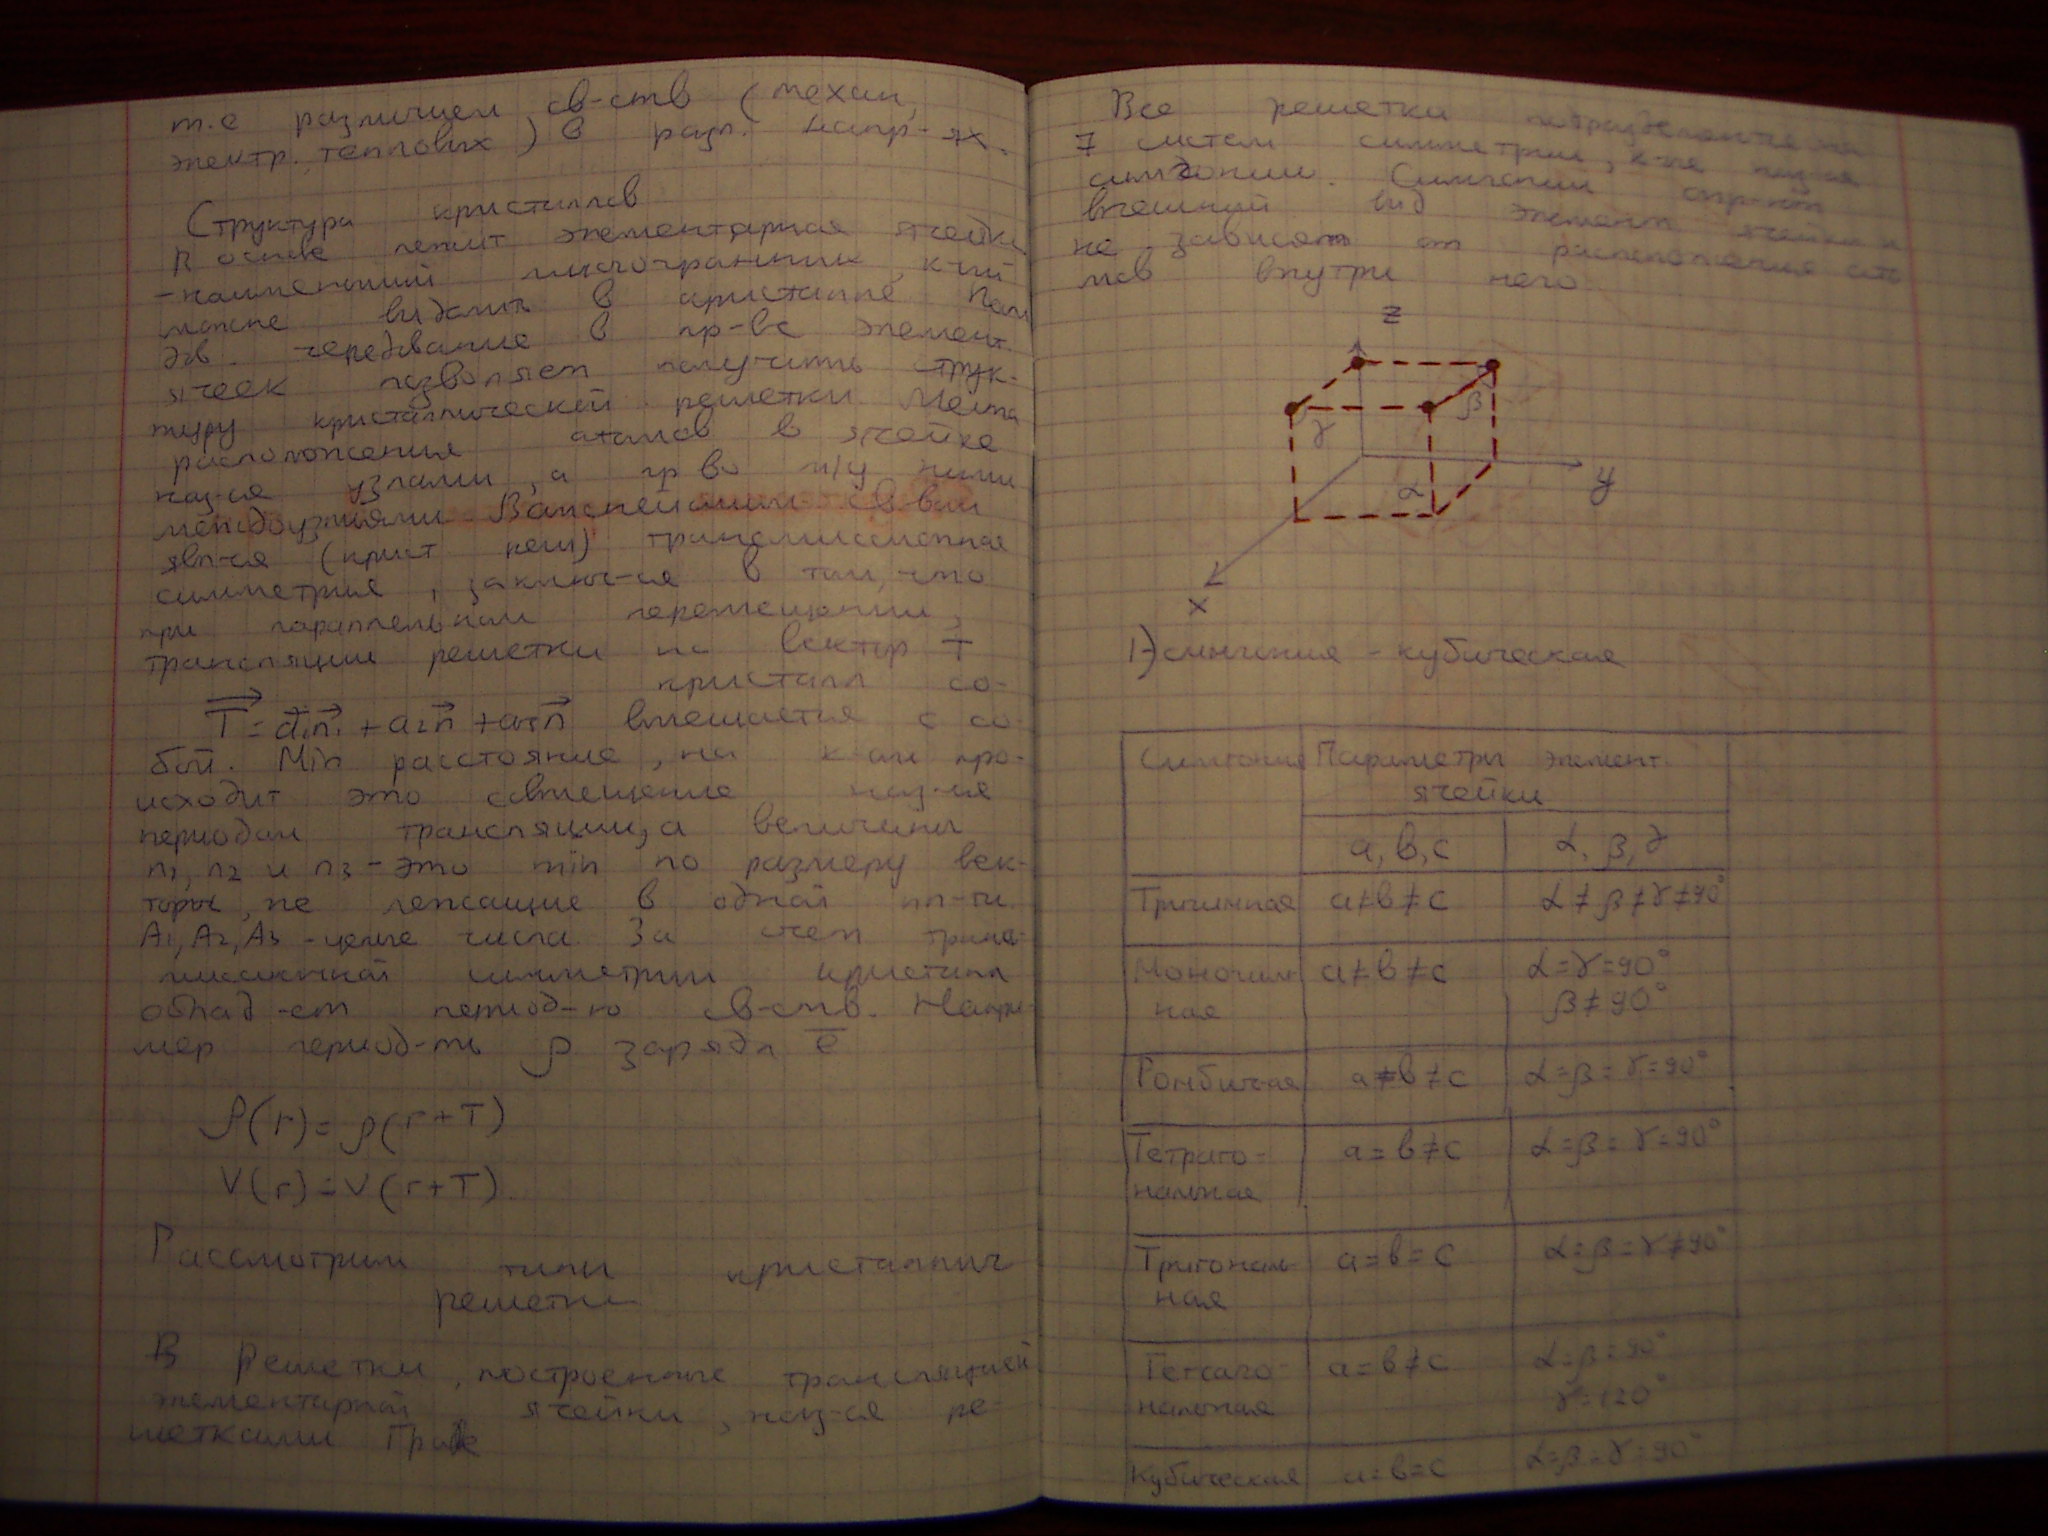 т.е различием св-ств (механ,
электр. тепловых) в разл. напр-ях.
Структура кристаллов
В основе лежит элементарная ячейка
-наименьший многогранник, к-ый
можно выделить в кристалле
чередование в пр-ве элемент
ячеек позволяет получить струк-
туру кристаллической решетки Места
расположения атомов в ячейке
наз-ся узлами, а пр во м/у ними
междоузлиями Важнейшим св-вом
явл-ся (крист реш) трансмиссионная
симметрия, заключ-ся в том, что
при параллельном перемещении,
трансляции решетки на вектор T
кристалл со-
T = a₁n₁ + a₂n + a₃n вмещается с со
бой. Min расстояние, на к-ом про-
исходит это совмещение наз-ся
периодом трансляции, а величины
n₁, n₂ и n₃ - это min по размеру век-
торы, не лежащие в одной пл-ти
A₁, A₂, A₃ - целые числа За счет транс-
миссионной симметрии кристалл
облад-ет период-ю св-ств. Напри-
мер период-ть ρ заряда e
ρ(r) = ρ(r+T)
V(r) = V(r+T).
Рассмотрим типы кристаллич
решетки
В Решетки, построенные трансляцией
элементарной ячейки, наз-ся ре-
шетками
Все решетки подразделяются на
7 систем симметрии, к-ые наз-ся
сингонии. Сингонии опр-ют
внешний вид элемент ячейки и
не зависят от расположения ато
мов внутри него
z
β
γ
α
y
x
1) сингония - кубическая
Сингония Параметры элемент.
ячейки
a, b, c α, β, γ
Триклинная a≠b≠c α≠β≠γ≠90°
Моноклин a≠b≠c α=γ=90°
ная β≠90°
Ромбичная a≠b≠c α=β=γ=90°
Тетраго- a=b≠c α=β=γ=90°
нальная
Тригональ a=b=c α=β=γ≠90°
ная
Гексаго- a=b≠c α=β=90°
нальная γ=120°
Кубическая a=b=c α=β=γ=90°